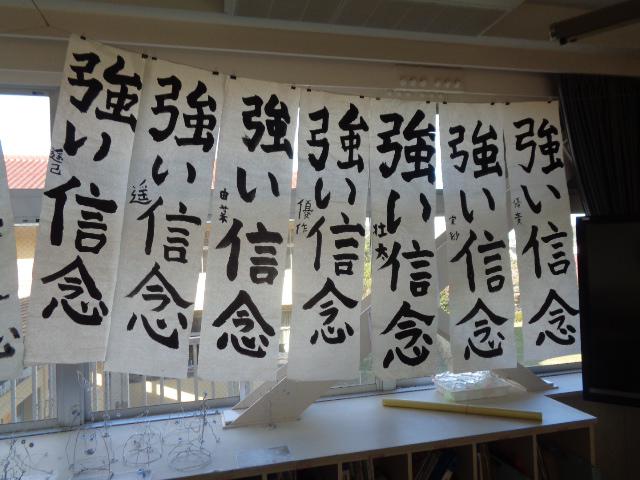 強い信念
強い信念
遥
強い信念
由菜
強い信念
優作
強い信念
壮太
強い信念
実紗
強い信念